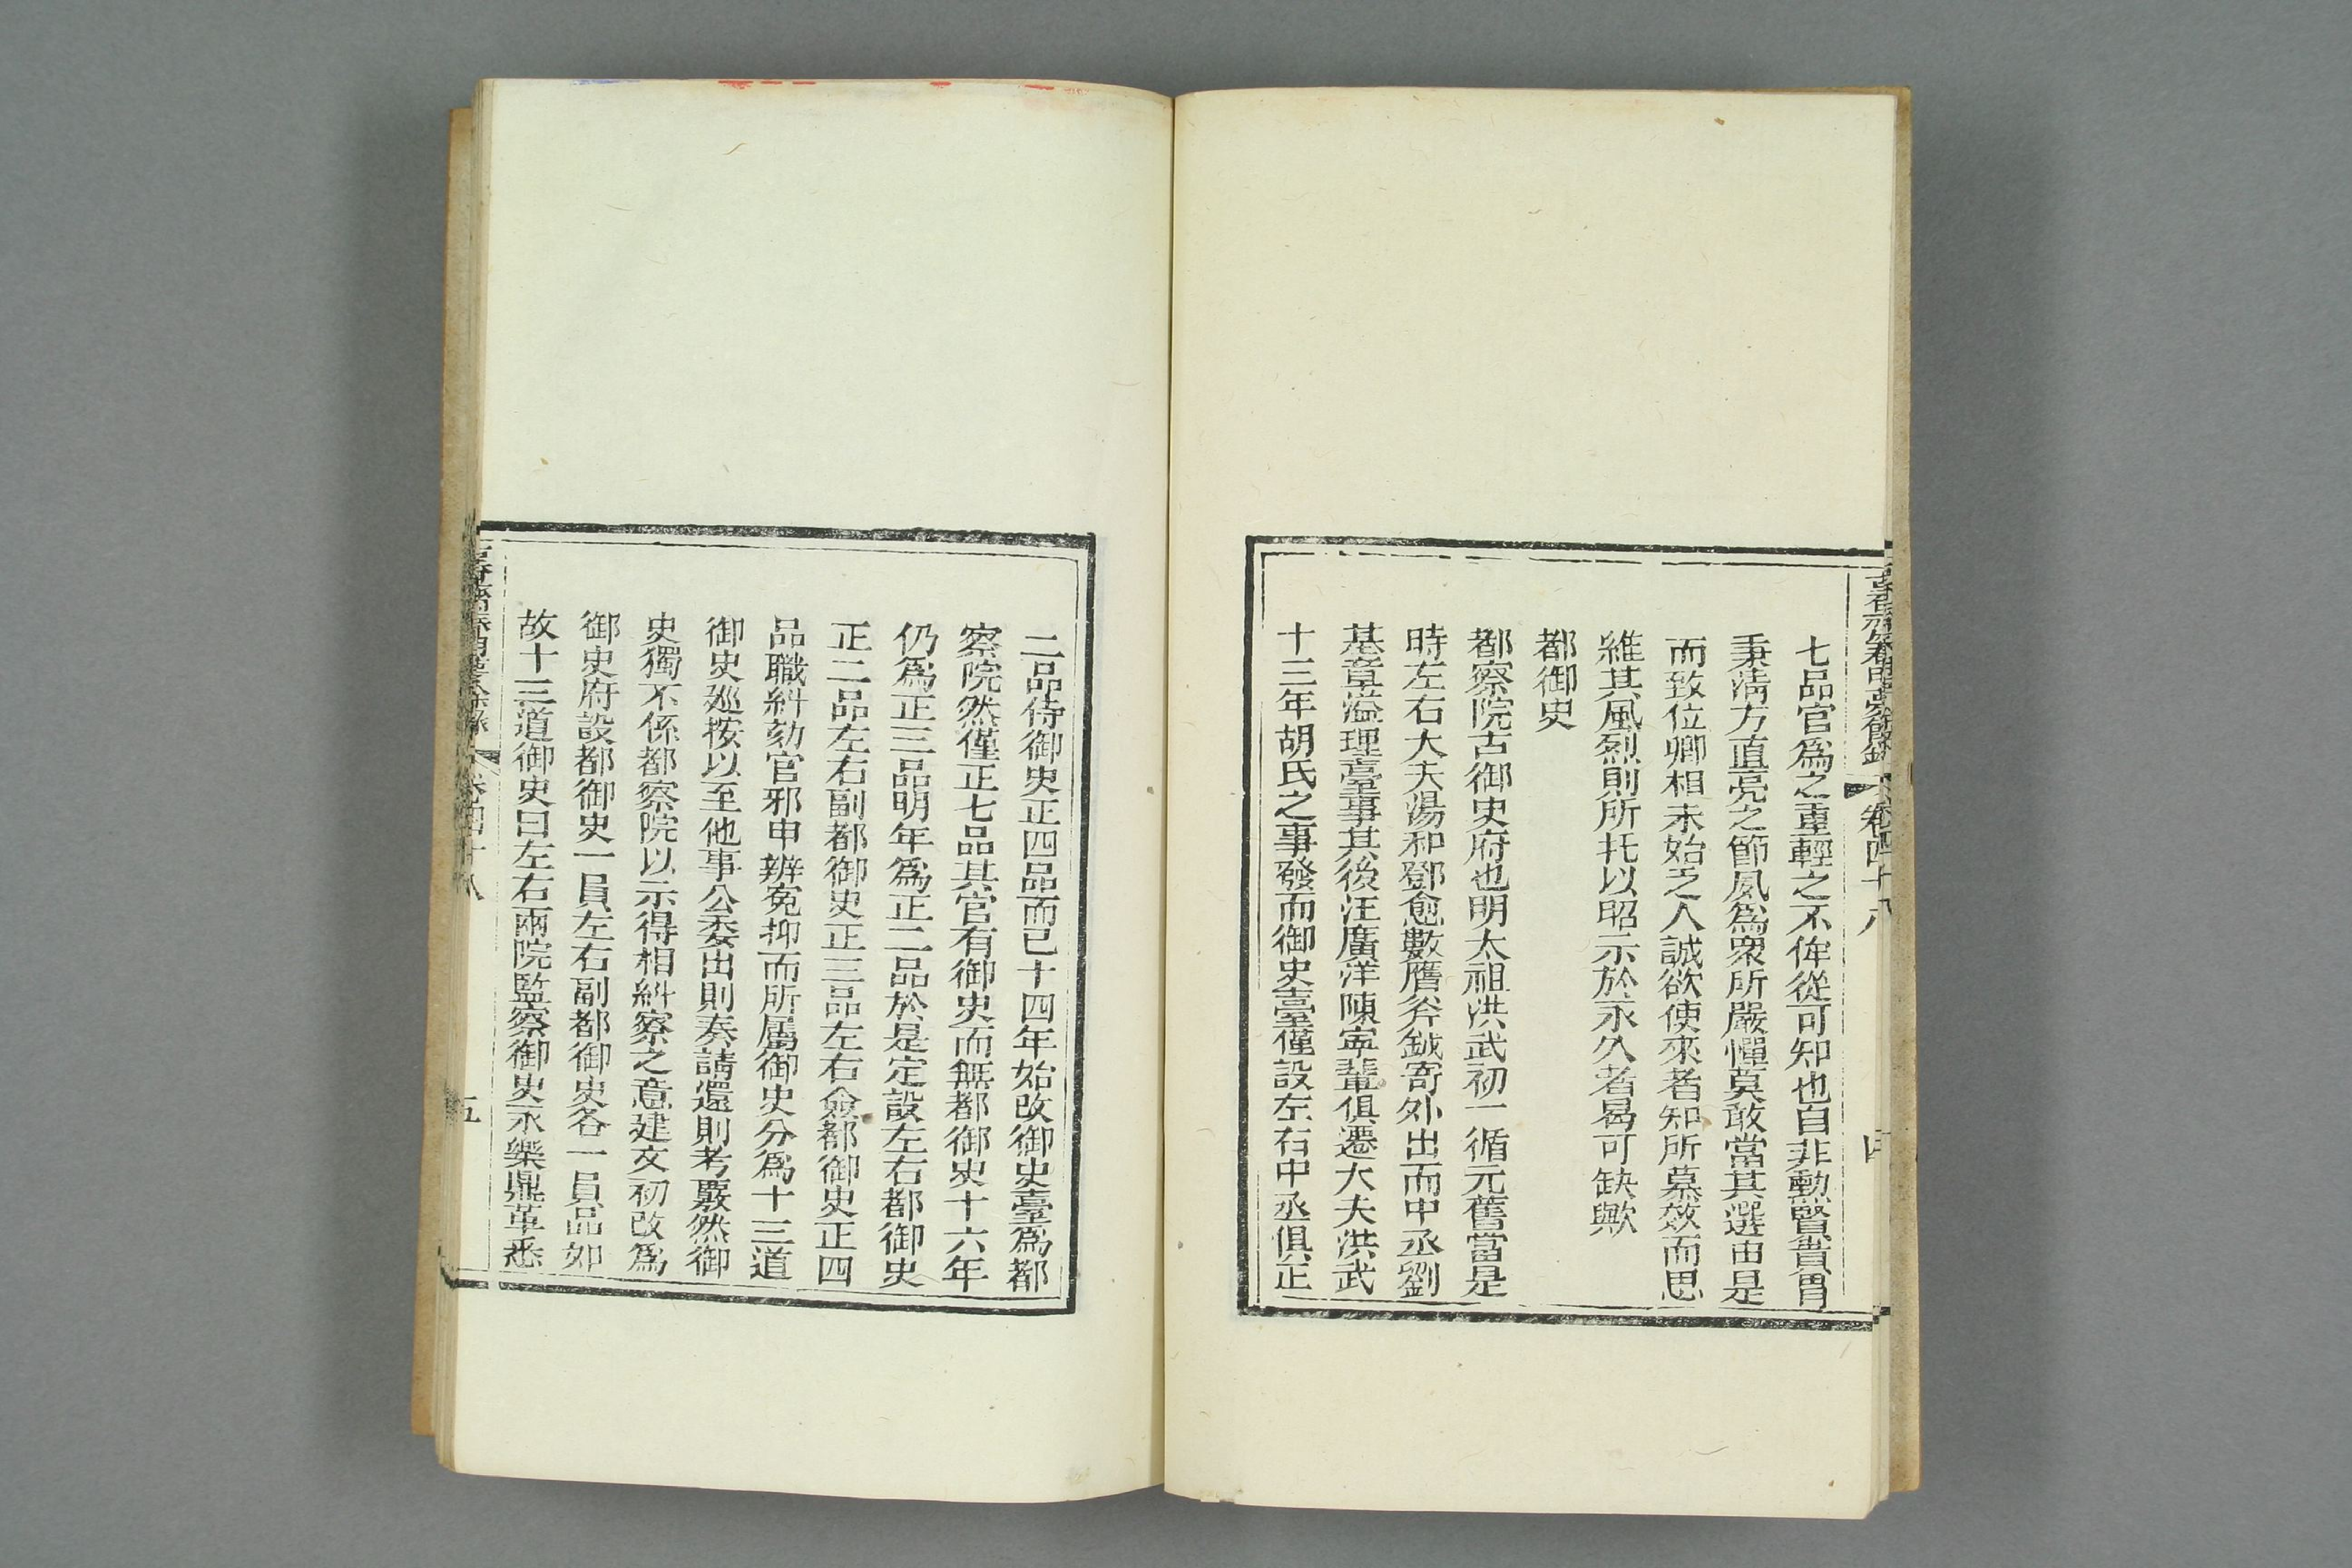 古香齋春明夢餘錄 卷四十八 四
七品官爲之重輕之不侔從可知也自非勳賢貴胄
秉淸方直亮之節夙爲衆所嚴憚莫敢當其選由是
而致位卿相未始乏人誠欲使來者知所慕效而思
維其風烈則所托以昭示於永久者曷可缺歟
都御史
都察院古御史府也明太祖洪武初一循元舊當是
時左右大夫湯和鄧愈數膺斧鉞寄外出而中丞劉
基章溢理臺事其後汪廣洋陳寧輩俱遷大夫洪武
十三年胡氏之事發而御史臺僅設左右中丞俱正
二品侍御史正四品而已十四年始改御史臺爲都
察院然僅正七品其官有御史而無都御史十六年
仍爲正三品明年爲正二品於是定設左右都御史
正二品左右副都御史正三品左右僉都御史正四
品職糾劾官邪申辨冤抑而所屬御史分爲十三道
御史廵按以至他事公委出則奏請還則考覈然御
史獨不係都察院以示得相糾察之意建文初改爲
御史府設都御史一員左右副都御史各一員品如
故十三道御史曰左右兩院監察御史永樂鼎革悉
古香齋春明夢餘錄 卷四十八 五